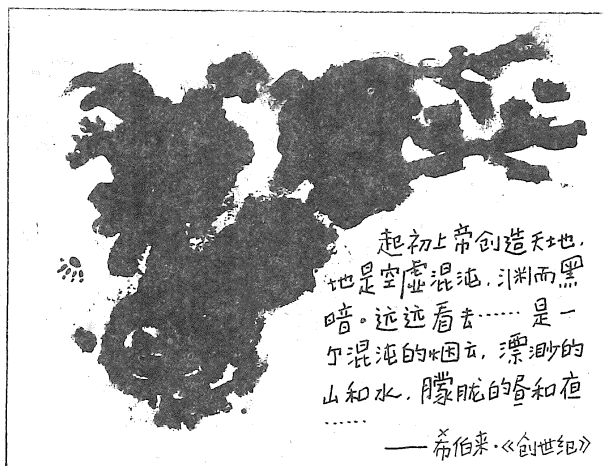 起初上帝创造天地.
地是空虚混沌.渊而黑
暗。远远看去……是一
个混沌的烟云.漂渺的
山和水.朦胧的昼和夜
……
——希伯来·《创世纪》